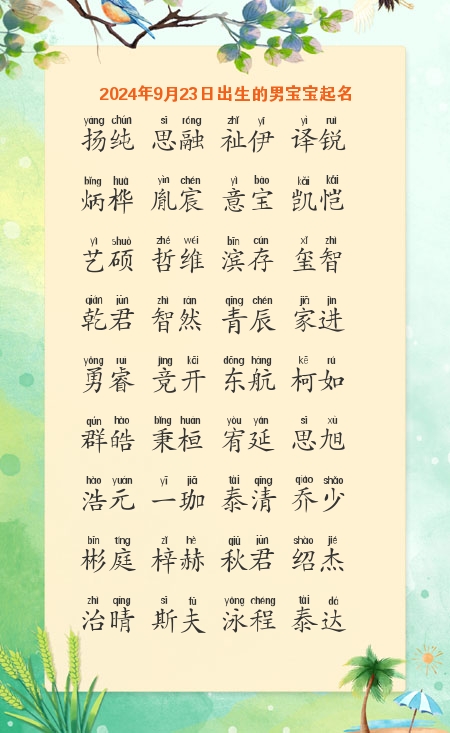 2024年9月23日出生的男宝宝起名
yáng chún sī róng zhǐ yī yì ruì
扬纯 思融 祉伊 译锐
bǐng huà yìn chén yì bǎo kǎi kǎi
炳桦 胤宸 意宝 凯恺
yì shuò zhé wéi bīn cún xǐ zhì
艺硕 哲维 滨存 玺智
qián jūn zhì rán qīng chén jiā jìn
乾君 智然 青辰 家进
yǒng ruì jìng kāi dōng háng kē rú
勇睿 竞开 东航 柯如
qún hào bǐng huán yòu yán sī xù
群皓 秉桓 宥延 思旭
hào yuán yī jiā tài qīng qiáo shǎo
浩元 一珈 泰清 乔少
bīn tíng zǐ hè qiū jūn shào jié
彬庭 梓赫 秋君 绍杰
zhì qíng sī fū yǒng chéng tài dá
治晴 斯夫 泳程 泰达